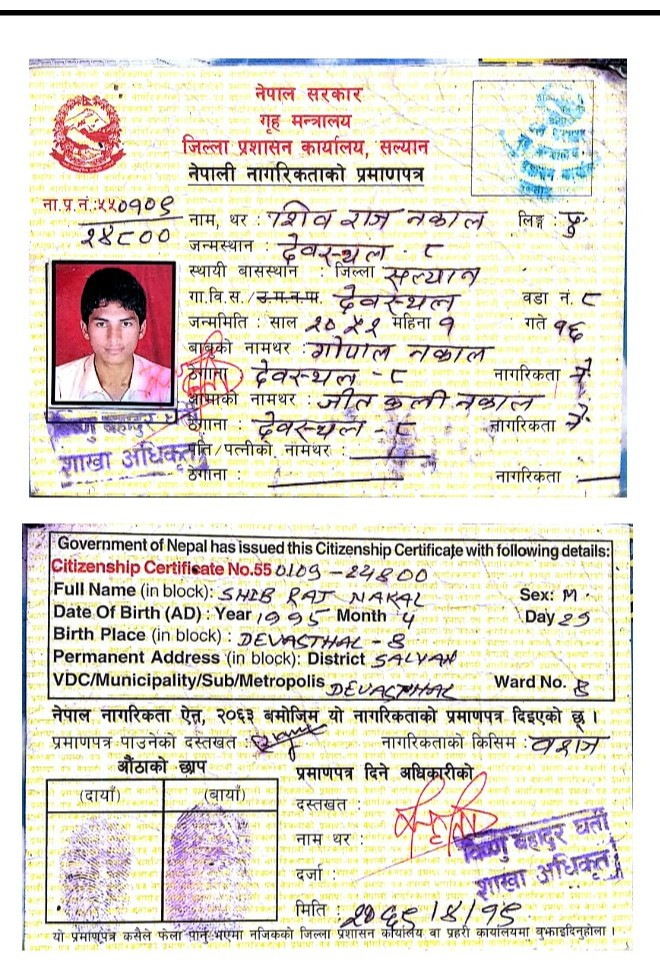 नेपाल सरकार
गृह मन्त्रालय
जिल्ला प्रशासन कार्यालय, सल्यान
नेपाली नागरिकताको प्रमाणपत्र
ना.प्र.नं.:५५०१०९
२४८००
नाम, थर : शिव राज नकाल लिङ्ग : पु
जन्मस्थान : देवस्थल - ८
स्थायी बासस्थान : जिल्ला सल्यान
गा.वि.स./उ.म.न.पा. देवस्थल वडा नं. ८
जन्ममिति : साल २०५२ महिना १ गते १६
बाबुको नामथर : गोपाल नकाल
ठेगाना : देवस्थल - ८ नागरिकता ने
आमाको नामथर : जीत कली नकाल
ठेगाना : देवस्थल - ८ नागरिकता ने
पति/पत्नीको नामथर :
ठेगाना : नागरिकता :
शाखा अधिकृत
Government of Nepal has issued this Citizenship Certificate with following details:
Citizenship Certificate No.55 0109 -24800
Full Name (in block): SHIB RAJ NAKAL Sex: M
Date Of Birth (AD) : Year 1995 Month 4 Day 29
Birth Place (in block) : DEVASTHAL - 8
Permanent Address (in block): District SALYAN
VDC/Municipality/Sub/Metropolis DEVASTHAL Ward No. 8
नेपाल नागरिकता ऐन, २०६३ बमोजिम यो नागरिकताको प्रमाणपत्र दिइएको छ ।
प्रमाणपत्र पाउनेको दस्तखत : नागरिकताको किसिम : वंशज
औंठाको छाप प्रमाणपत्र दिने अधिकारीको
(दायाँ) (बायाँ) दस्तखत :
नाम थर : विष्णु बहादुर घर्ती
दर्जा : शाखा अधिकृत
मिति :
यो प्रमाणपत्र कसैले फेला पार्नु भएमा नजिकको जिल्ला प्रशासन कार्यालय वा प्रहरी कार्यालयमा बुझाइदिनुहोला ।